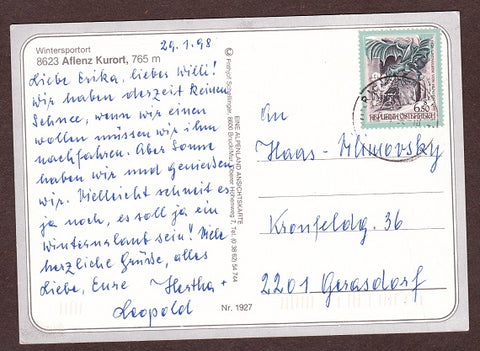 29.1.98
Wintersportort
8623 Aflenz Kurort, 765 m
Liebe Erika, lieber Willi!
Wir haben derzeit keinen
Schnee, wenn wir einen
wollen müssen wir ihm
nachfahren. Aber Sonne
haben wir und genießen
wir. Vielleicht schneit es
ja noch, es soll ja ein
Winterurlaub sein! Viele
herzliche Grüße, alles
Liebe, Eure Hertha +
Leopold
EINE ALPENLAND ANSICHTSKARTE
Nr. 1927
6.50
REPUBLIK ÖSTERREICH
An
Haas-Klimovsky
Kronfeldg. 36
2201 Gerasdorf